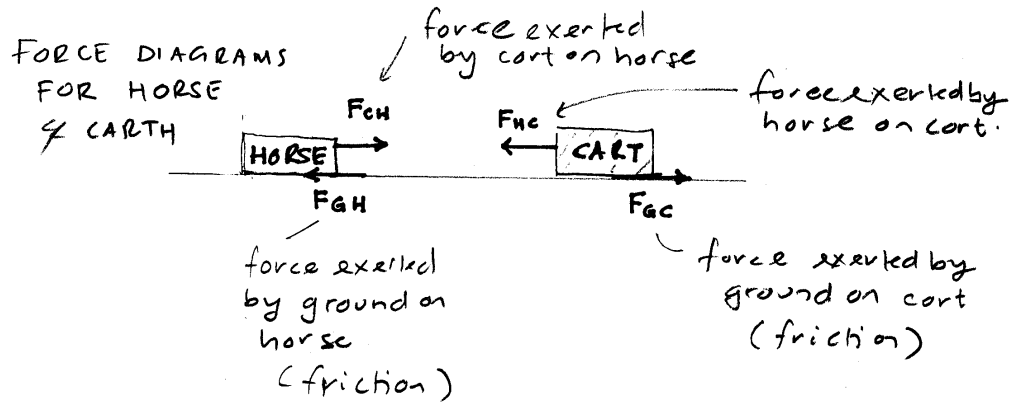 FORCE DIAGRAMS
FOR HORSE
& CARTH
force exerted
by cart on horse
force exerted by
horse on cart.
FCH
FHC
HORSE
CART
FGH
FGC
force exerted
by ground on
horse
(friction)
force exerted by
ground on cart
(friction)